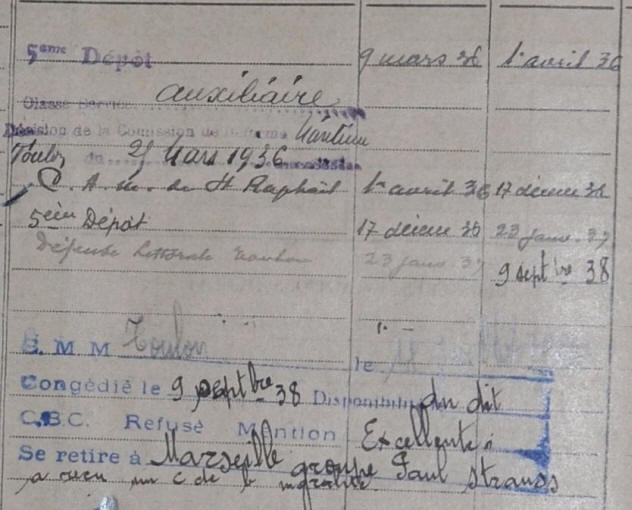 5ème Dépôt 9 mars 36 1er avril 36
Classé Service auxiliaire
Décision de la Comission de Réforme
Toulon du 21 Mars 1936
C. A. M. de St Raphaël 1er avril 36 17 décem 36
5ème Dépôt 17 décem 36 23 janv. 37
Défense littorale Toulon 23 janv. 37
9 septbre 38
E. M M Toulon le
Congédié le 9 septbre 38 Disponibilité du dit
C.B.C. Refusé Mention Excellente
Se retire à Marseille groupe Paul Strauss
a reçu un C de